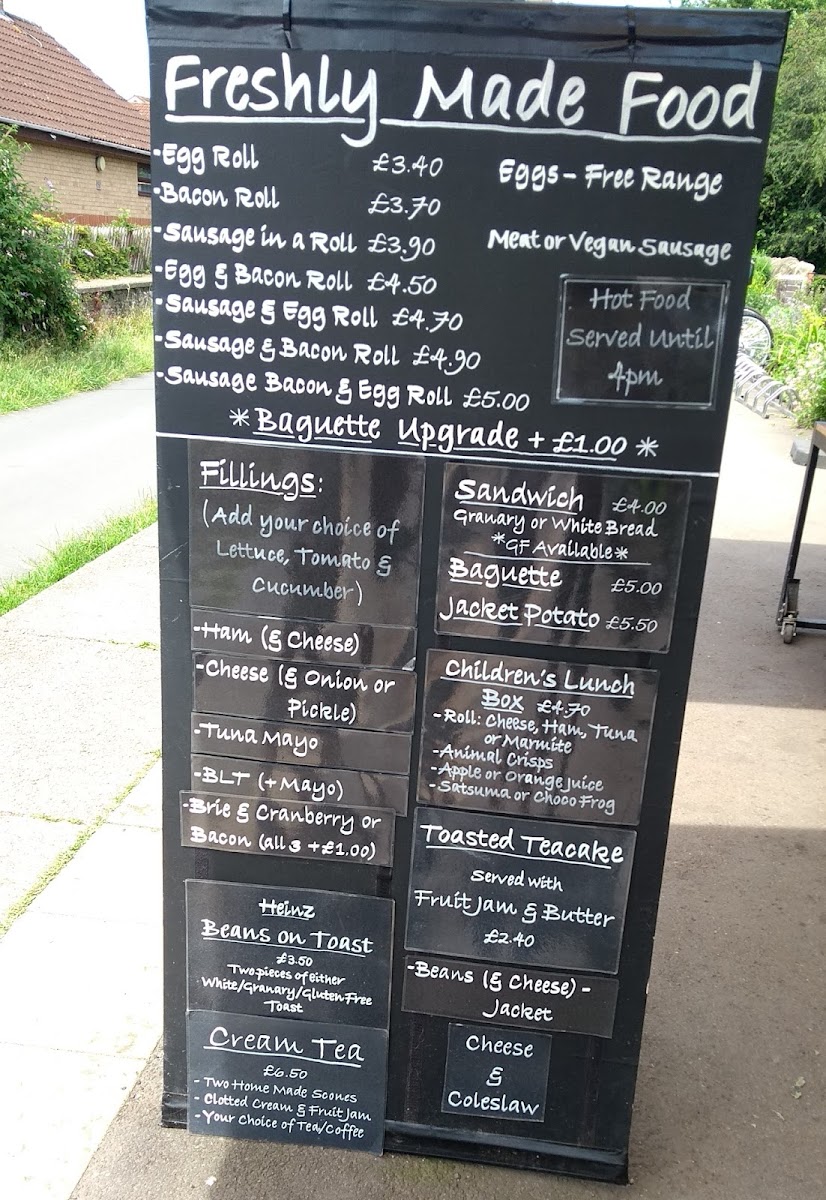 Freshly Made Food
-Egg Roll £3.40
-Bacon Roll £3.70
-Sausage in a Roll £3.90
-Egg & Bacon Roll £4.50
-Sausage & Egg Roll £4.70
-Sausage & Bacon Roll £4.90
-Sausage Bacon & Egg Roll £5.00
Eggs - Free Range
Meat or Vegan Sausage
Hot Food
Served Until
4pm
*Baguette Upgrade + £1.00*
Fillings:
(Add your choice of
Lettuce, Tomato &
Cucumber)
-Ham (& Cheese)
-Cheese (& Onion or
Pickle)
-Tuna Mayo
-BLT (+Mayo)
-Brie & Cranberry or
Bacon (all 3 +£1.00)
Heinz
Beans on Toast
£3.50
Two pieces of either
White/Granary/Gluten Free
Toast
Cream Tea
£6.50
- Two Home Made Scones
- Clotted Cream & Fruit Jam
- Your Choice of Tea/Coffee
Sandwich £4.00
Granary or White Bread
*GF Available*
Baguette £5.00
Jacket Potato £5.50
Children's Lunch
Box £4.70
- Roll: Cheese, Ham, Tuna
or Marmite
-Animal Crisps
-Apple or Orange Juice
-Satsuma or Choco Frog
Toasted Teacake
Served with
Fruit Jam & Butter
£2.40
-Beans (& Cheese) -
Jacket
Cheese
&
Coleslaw